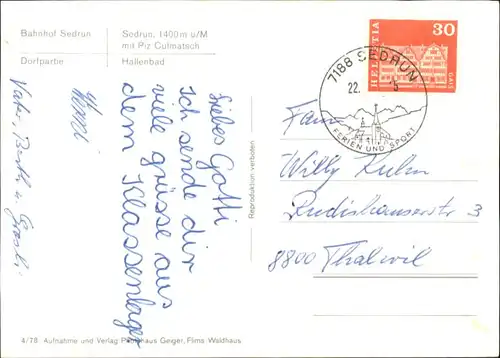 Bahnhof Sedrun
Dorfpartie
Sedrun, 1400 m ü/M
mit Piz Culmatsch
Hallenbad
Liebes Gotti
Ich sende dir
viele grüsse aus
dem Klassenlager
Vater,
Reproduktion verboten
4/78 Aufnahme und Verlag Photohaus Geiger, Flims Waldhaus
HELVETIA
30
GAIS
7188 SEDRUN
22.
FERIEN UND SPORT
Fam
Willy Kuhn
Rudishauserstr 3
8800 Thalwil